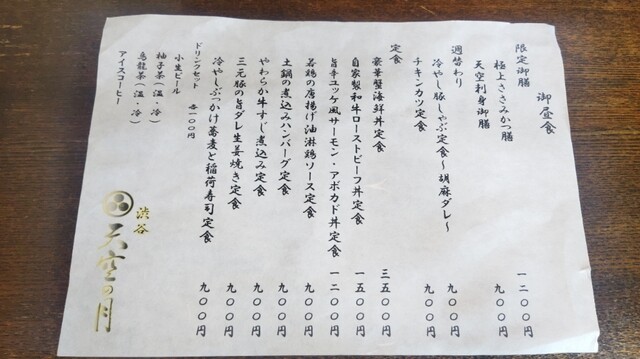 御昼食
限定御膳
極上ささみかつ膳 一二〇〇円
天空刺身御膳
週替わり
冷やし豚しゃぶ定食～胡麻ダレ～ 九〇〇円
チキンカツ定食 九〇〇円
定食
豪華蟹海鮮丼定食 三五〇〇円
自家製和牛ローストビーフ丼定食 一五〇〇円
旨辛ユッケ風サーモン・アボカド丼定食 一二〇〇円
若鶏の唐揚げ油淋鶏ソース定食 九〇〇円
土鍋の煮込みハンバーグ定食 九〇〇円
やわらか牛すじ煮込み定食 九〇〇円
三元豚の旨ダレ生姜焼き定食 九〇〇円
冷やしぶっかけ蕎麦と稲荷寿司定食 九〇〇円
ドリンクセット 各一〇〇円
小生ビール
柚子茶(温・冷)
烏龍茶(温・冷)
アイスコーヒー
渋谷
天空の月